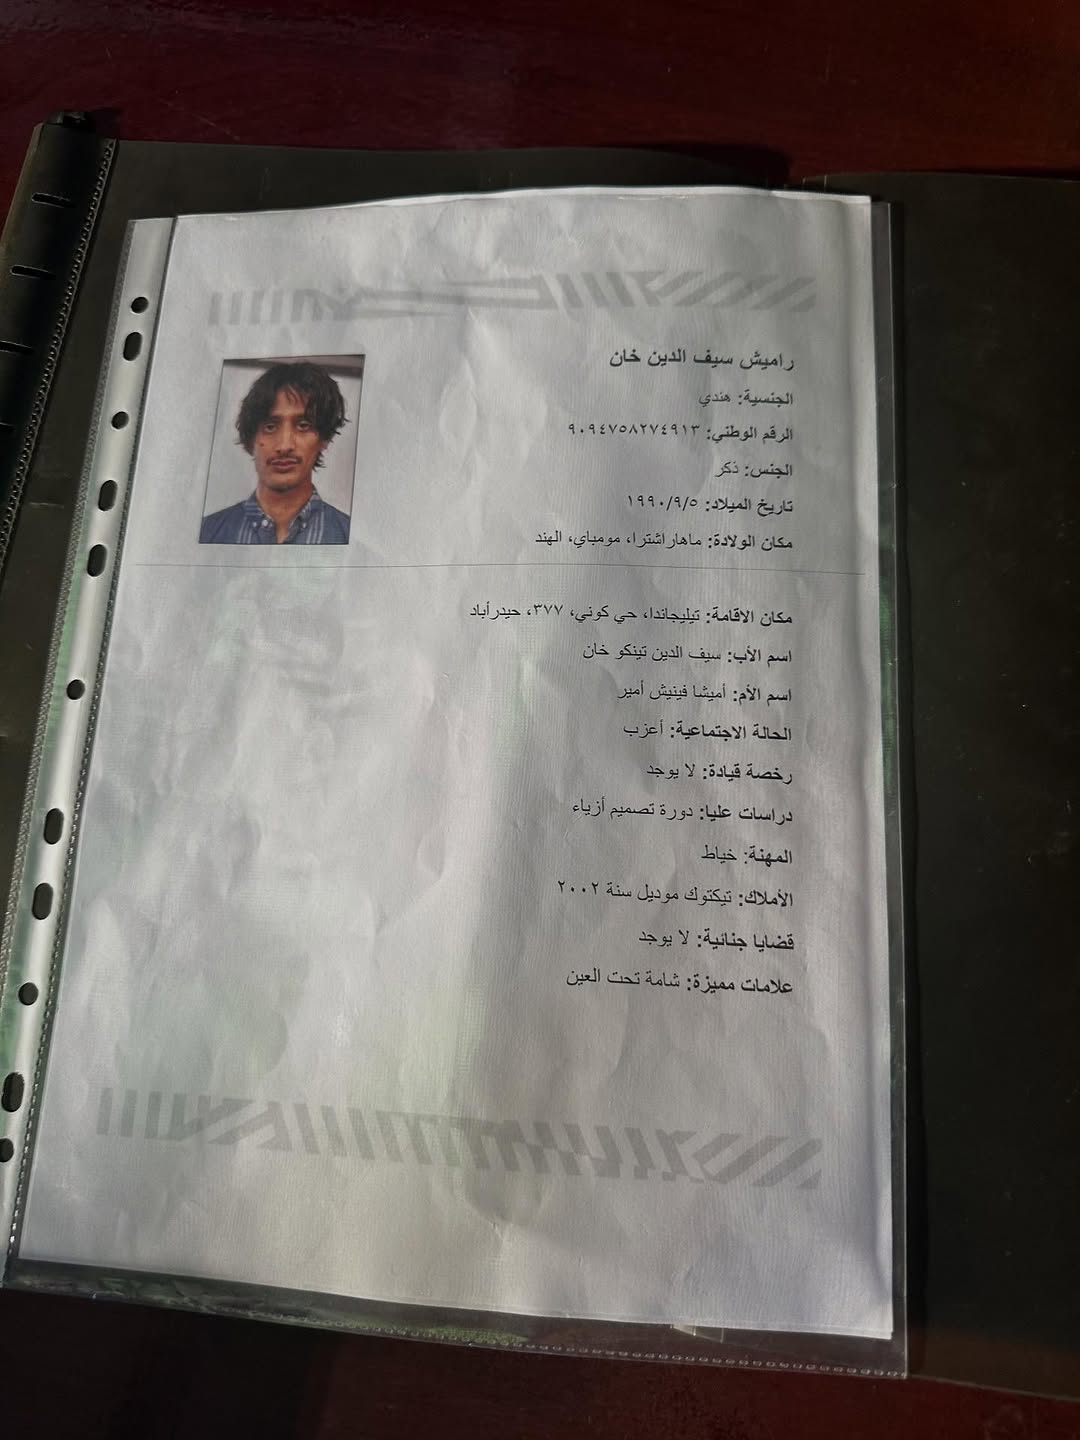 راميش سيف الدين خان
الجنسية: هندي
الرقم الوطني: ٩٠٩٤٧٥٨٢٧٤٩١٣
الجنس: ذكر
تاريخ الميلاد: ١٩٩٠/٩/٥
مكان الولادة: ماهاراشترا، مومباي، الهند
مكان الاقامة: تيليجاندا، حي كوني، ٣٧٧، حيدرأباد
اسم الأب: سيف الدين تينكو خان
اسم الأم: أميشا فينيش أمير
الحالة الاجتماعية: أعزب
رخصة قيادة: لا يوجد
دراسات عليا: دورة تصميم أزياء
المهنة: خياط
الأملاك: تيكتوك موديل سنة ٢٠٠٢
قضايا جنائية: لا يوجد
علامات مميزة: شامة تحت العين